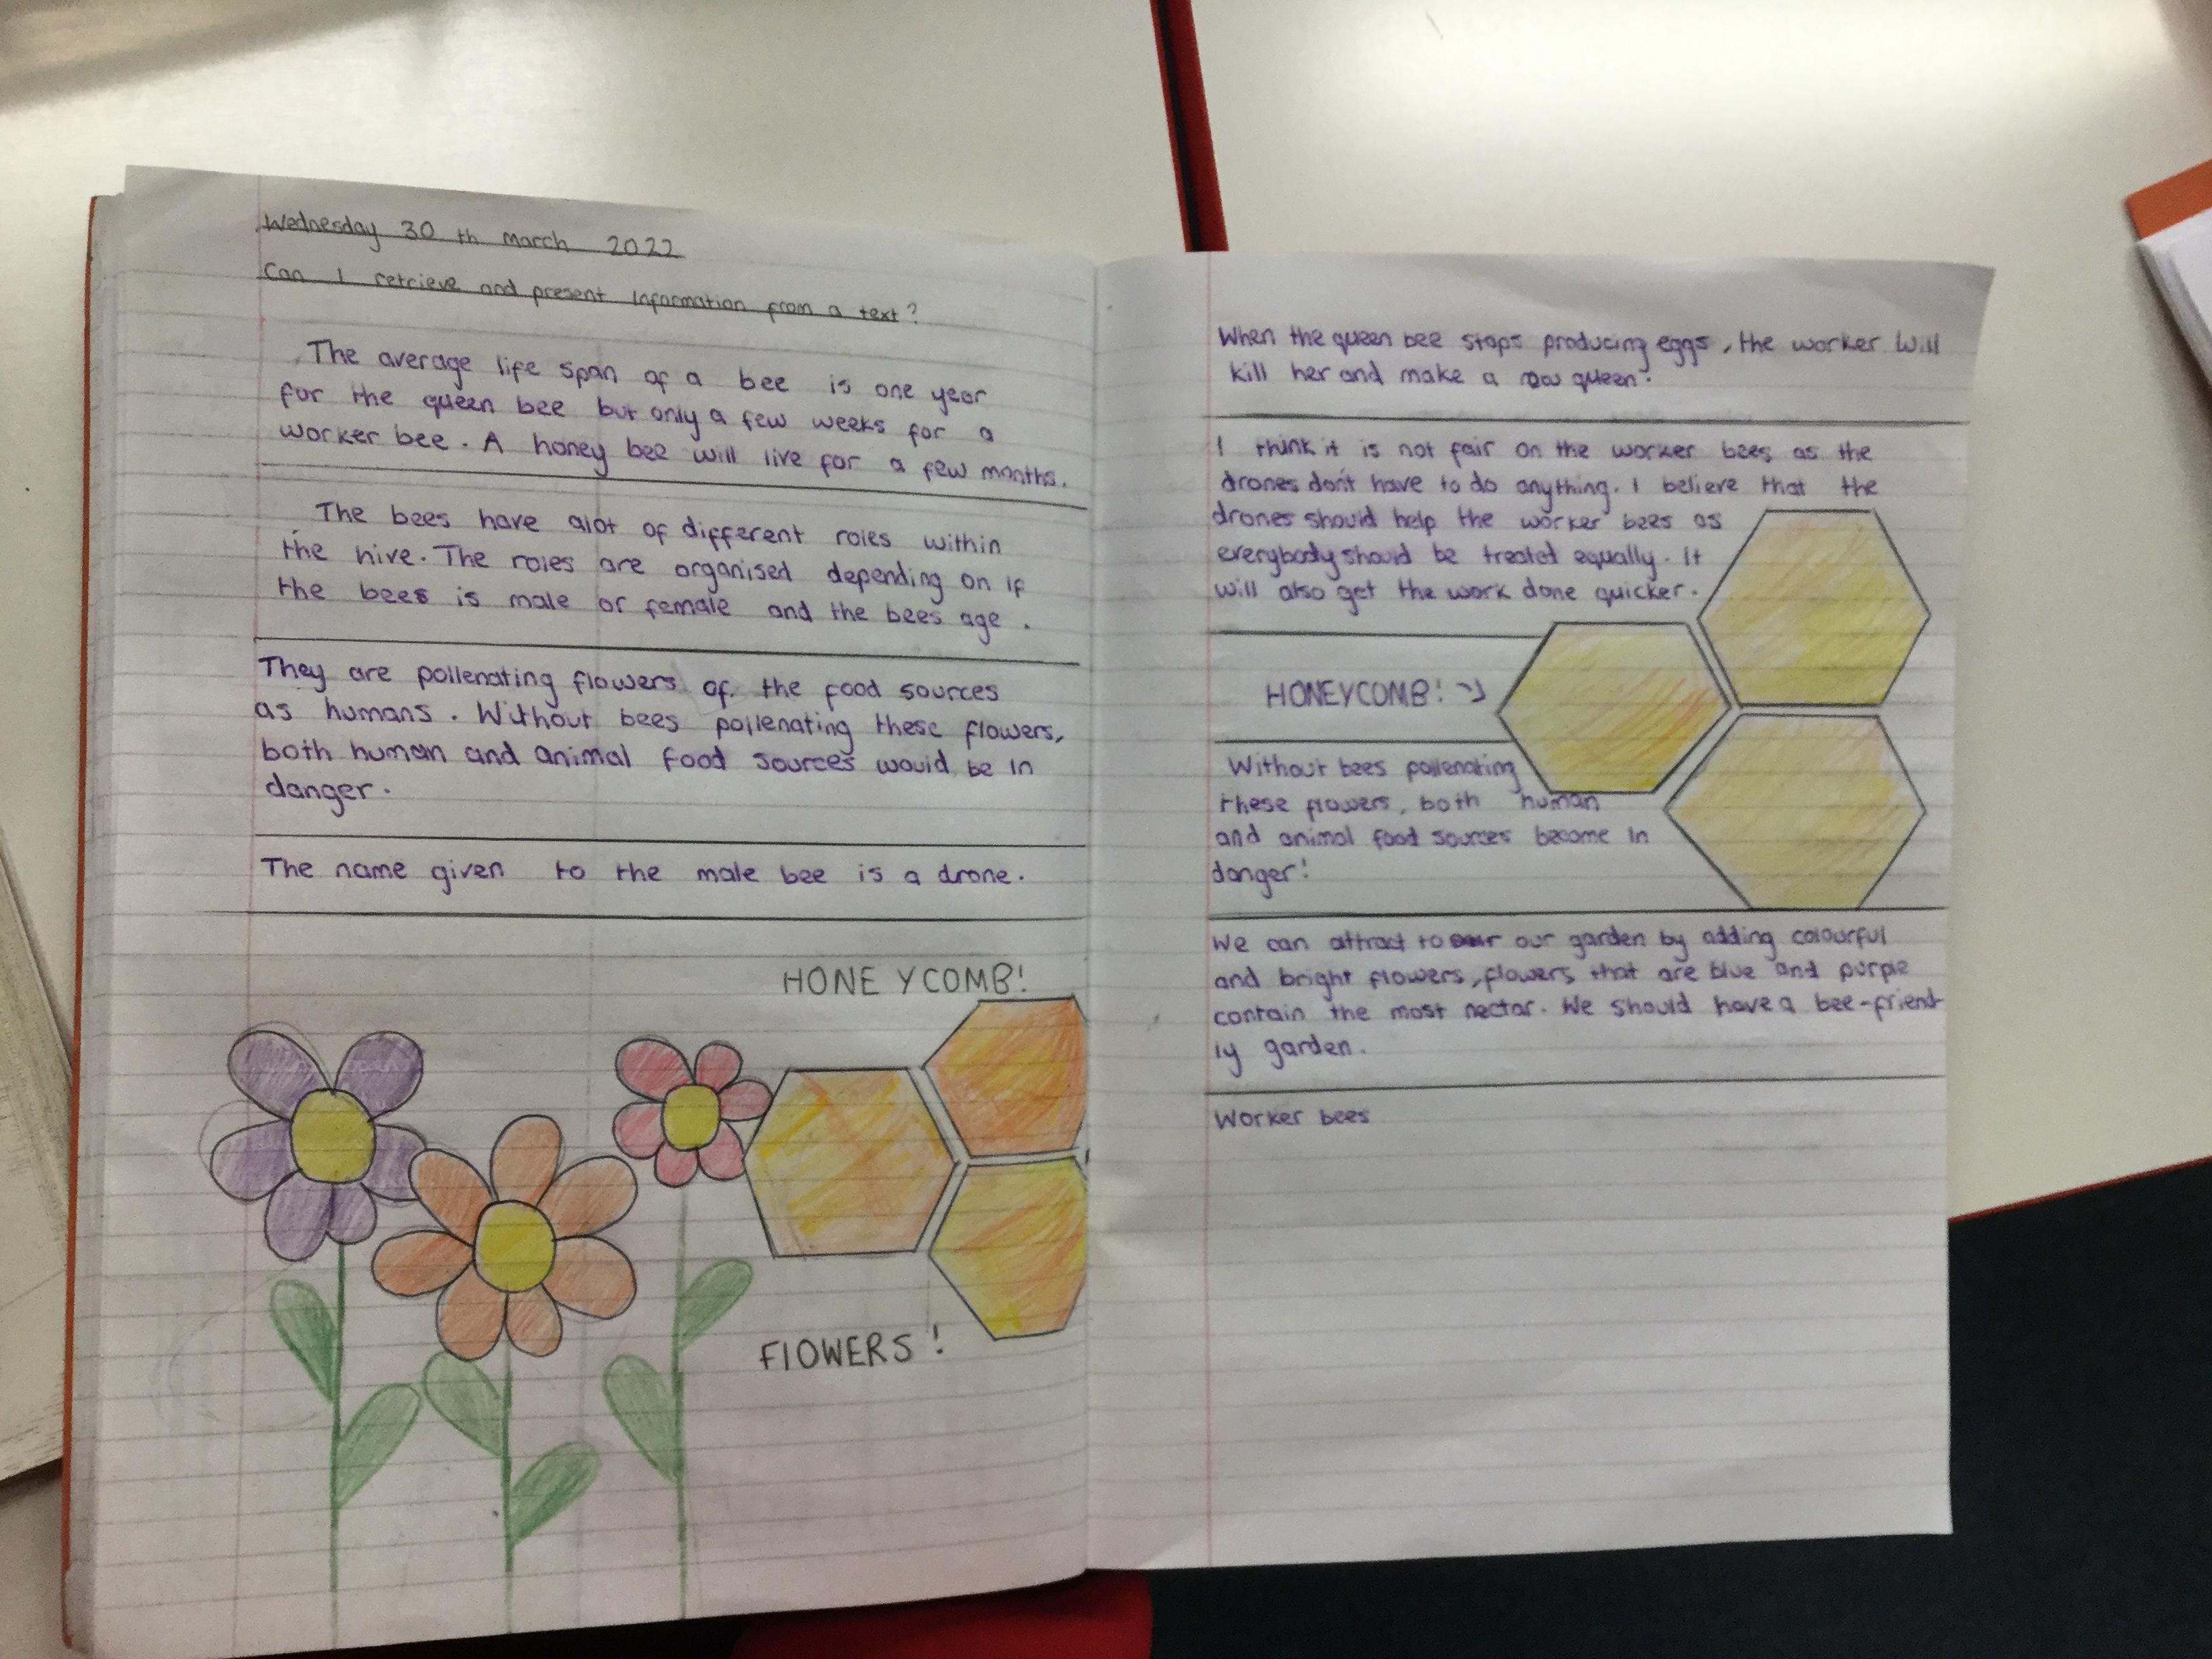 Wednesday 30 th march 2022
Can I retrieve and present information from a text?
The average life span of a bee is one year
for the queen bee but only a few weeks for a
worker bee. A honey bee will live for a few months.
The bees have alot of different roles within
the hive. The roles are organised depending on if
the bees is male or female and the bees age.
They are pollenating flowers of the food sources
as humans. Without bees pollenating these flowers,
both human and animal food sources would be in
danger.
The name given to the male bee is a drone.
HONEYCOMB!
FLOWERS!
When the queen bee stops producing eggs, the worker will
kill her and make a new queen.
I think it is not fair on the worker bees as the
drones don't have to do anything. I believe that the
drones should help the worker bees as
everybody should be treated equally. It
will also get the work done quicker.
HONEYCOMB!
Without bees pollenating
these flowers, both human
and animal food sources become in
danger!
We can attract to our garden by adding colourful
and bright flowers, flowers that are blue and purple
contain the most nectar. We should have a bee-friend-
ly garden.
Worker bees